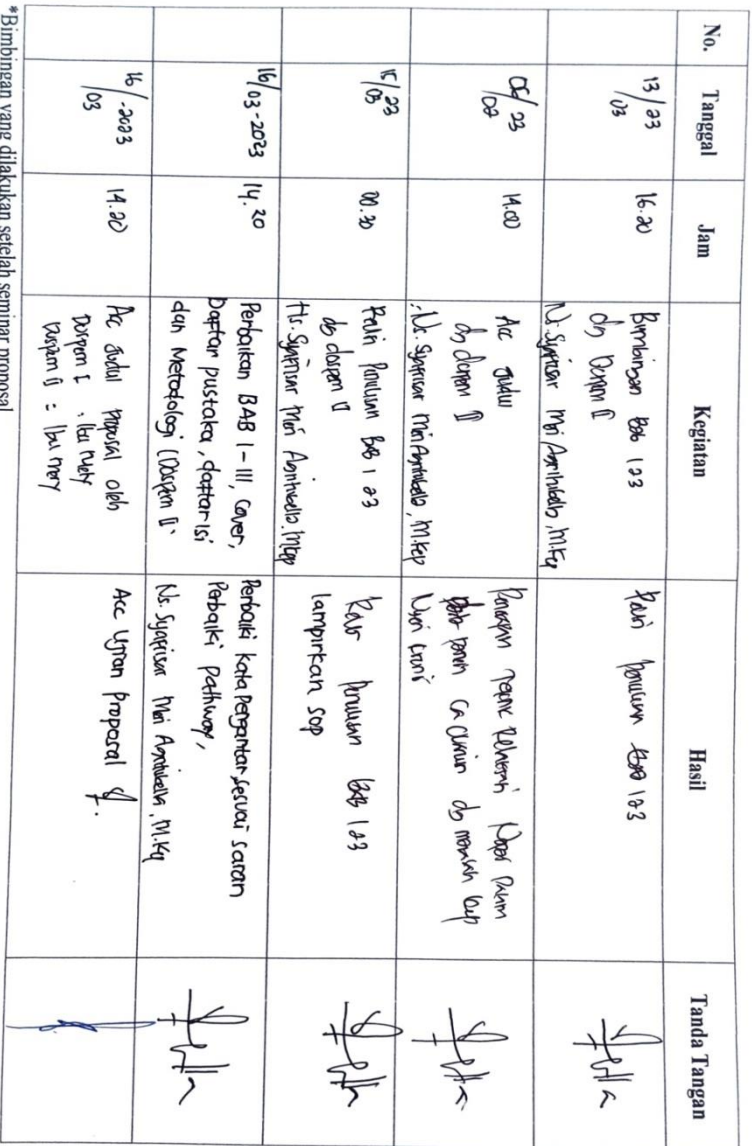 No. Tanggal Jam Kegiatan Hasil Tanda Tangan
13/23
03
16.20
Bimbingan Bab 123
dg Dospem II
Ns. Syafrisar Meri Agritubella, M.Kep
Revisi Penulisan Bab 123
06/23
02
14.00
Acc Judul
dg dospem II
: Ns. Syafrisar Meri Agritubella, M.Kep
Penerapan Teknik Relaksasi Napas Dalam
pada pasien CA dg masalah kep
Nyeri kronis
15/23
03
Revisi Penulisan Bab 1 23
dg dospem II
Ns. Syafrisar Meri Agritubella. M.Kep
Penulisan Bab 123
lampirkan SOP
16/03-2023
14.20
Perbaikan BAB I-III, Cover,
Daptar pustaka, daftar isi
dan Metodologi (Dospem II)
Perbaiki kata Pengantar sesuai saran
Perbaiki pathway,
Ns. Syafrisar Meri Agritubella, M.Kep
16/-2023
03
14.20
Acc Judul Proposal oleh
Dospem I : Ibu Mery
Dospem II = Ibu mery
Acc Ujian Proposal
*Bimbingan yang dilakukan setelah seminar proposal